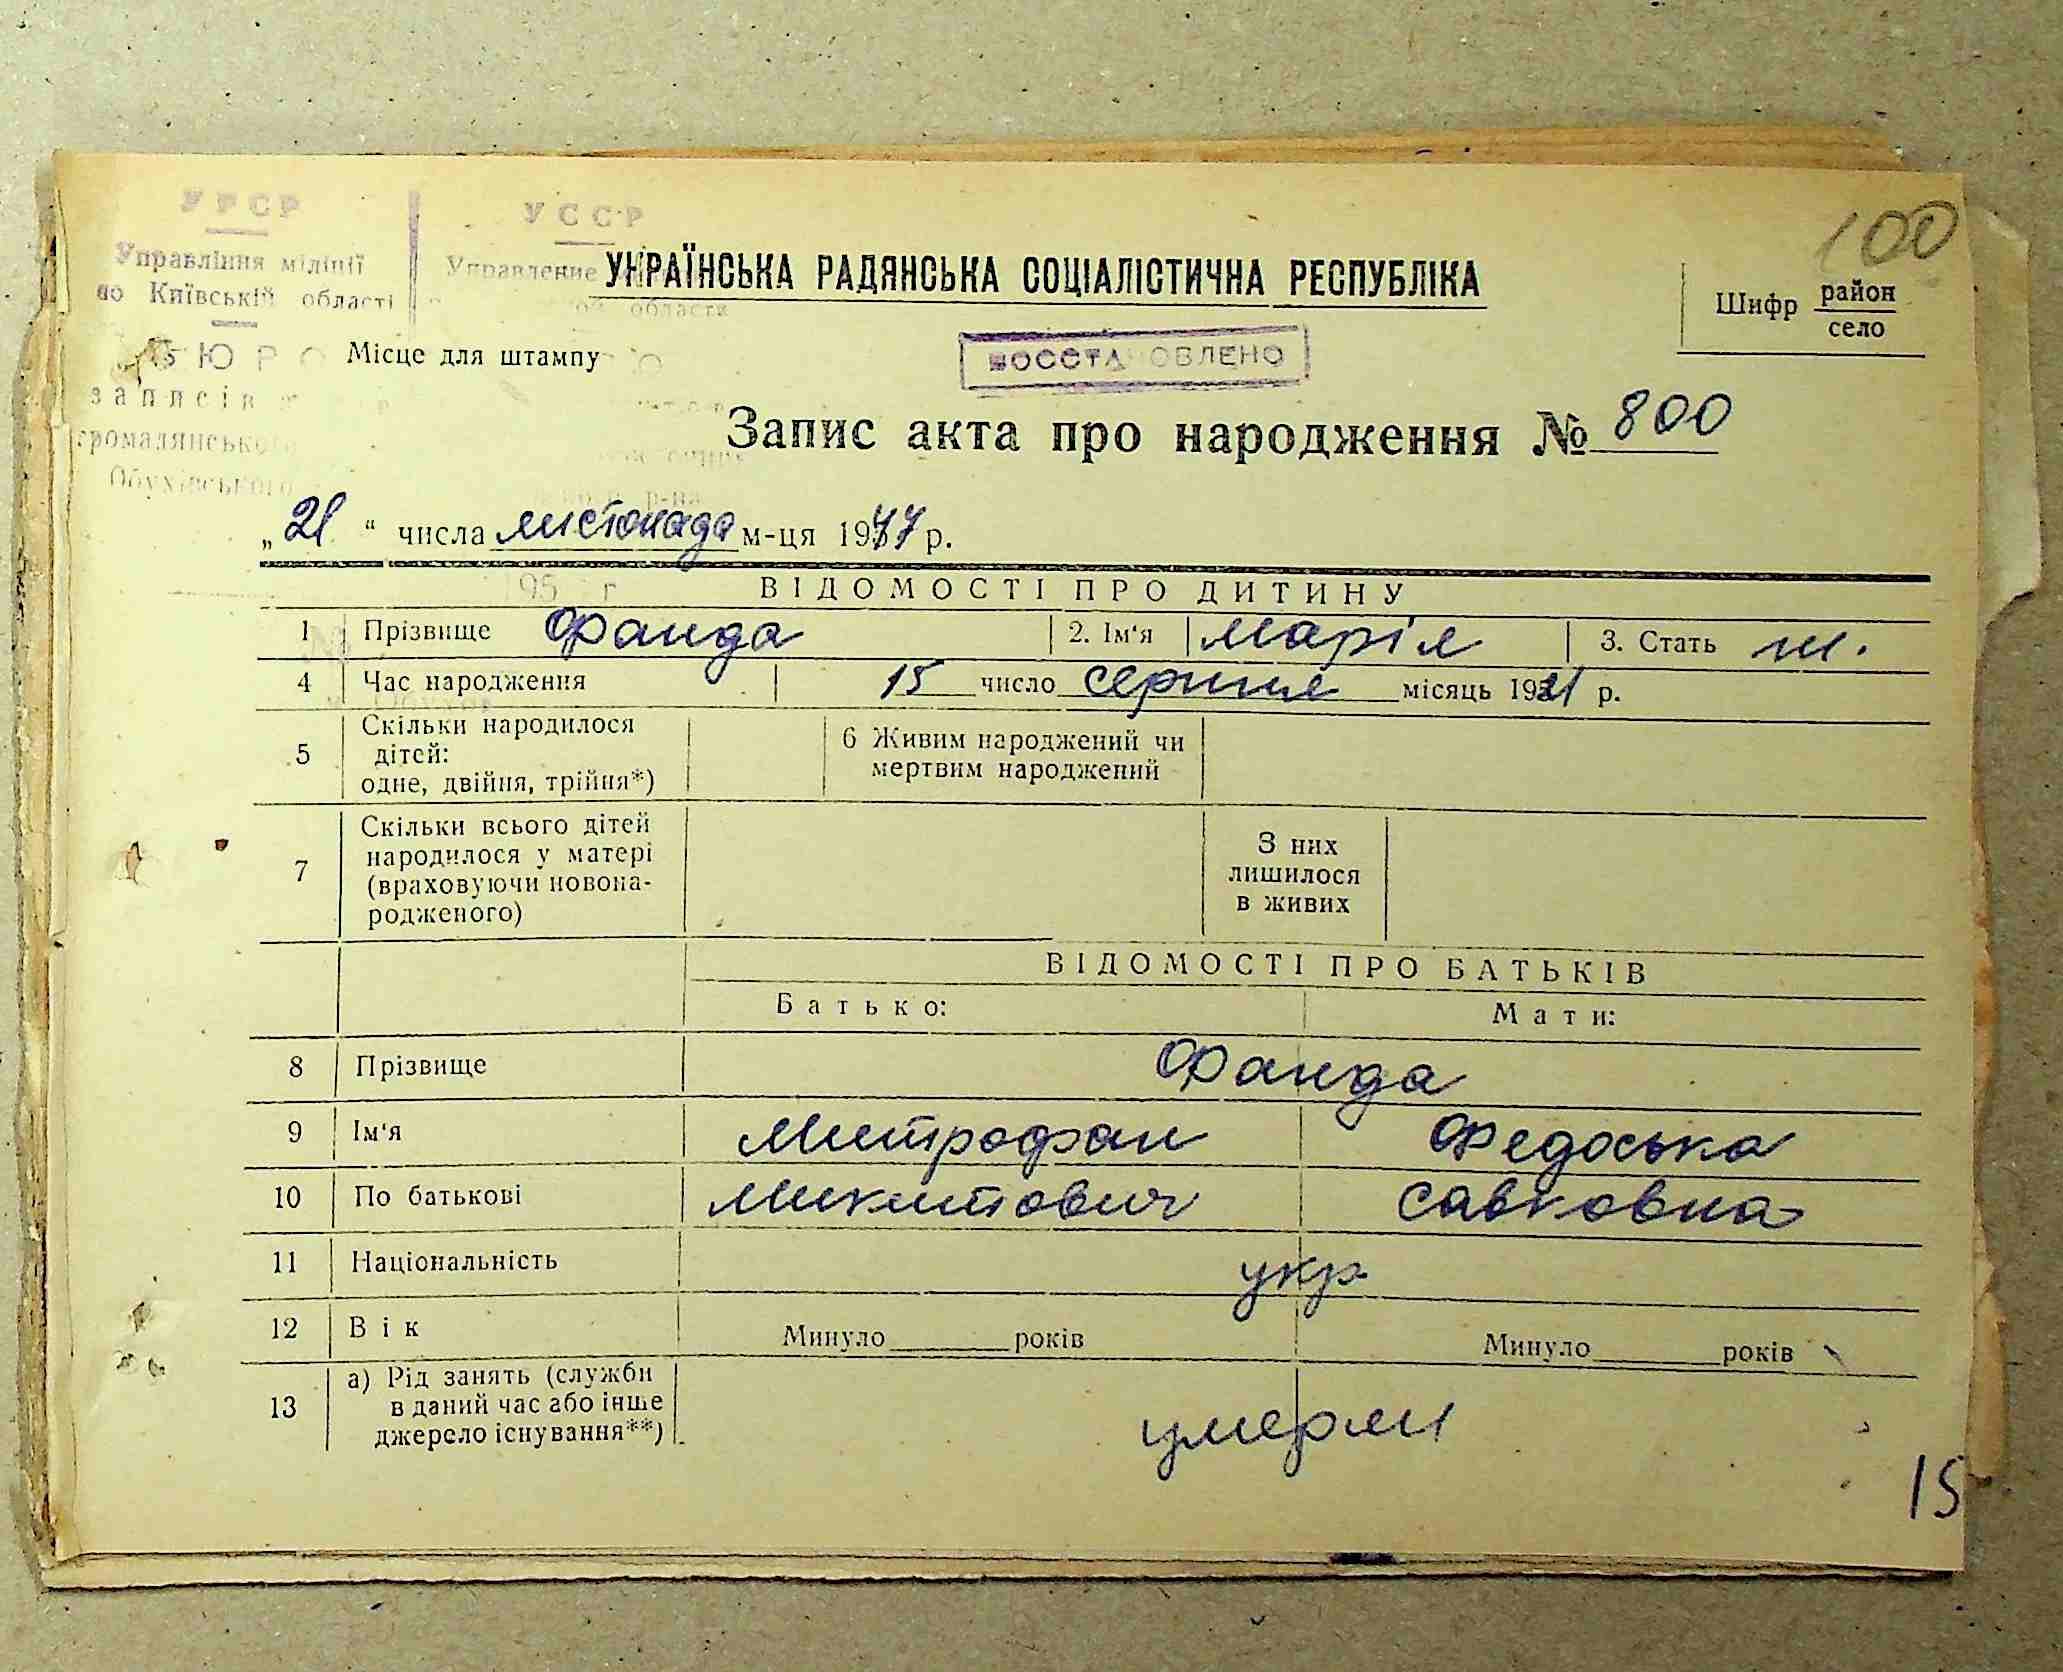 100
УРСР
УССР
Управління міліції
Управление
УКРАЇНСЬКА РАДЯНСЬКА СОЦІАЛІСТИЧНА РЕСПУБЛІКА
по Київській області
ой области
Шифр район
село
БЮРО
Місце для штампу
ВОССТАНОВЛЕНО
записів
громадянського
Запис акта про народження № 800
Обухівського
р-на
„21“ числа листопада м-ця 1977 р.
195 г
ВІДОМОСТІ ПРО ДИТИНУ
1 Прізвище Фанда 2. Ім'я Марія 3. Стать ж.
4 Час народження 15 число серпня місяць 1921 р.
5 Скільки народилося
дітей:
одне, двійня, трійня*)
6 Живим народжений чи
мертвим народжений
7 Скільки всього дітей
народилося у матері
(враховуючи новона-
родженого)
З них
лишилося
в живих
ВІДОМОСТІ ПРО БАТЬКІВ
Батько: Мати:
8 Прізвище Фанда
9 Ім'я Митрофан Федоська
10 По батькові Микитович Савковна
11 Національність укр
12 Вік Минуло років Минуло років
13 а) Рід занять (служби
в даний час або інше
джерело існування**)
умерли
15